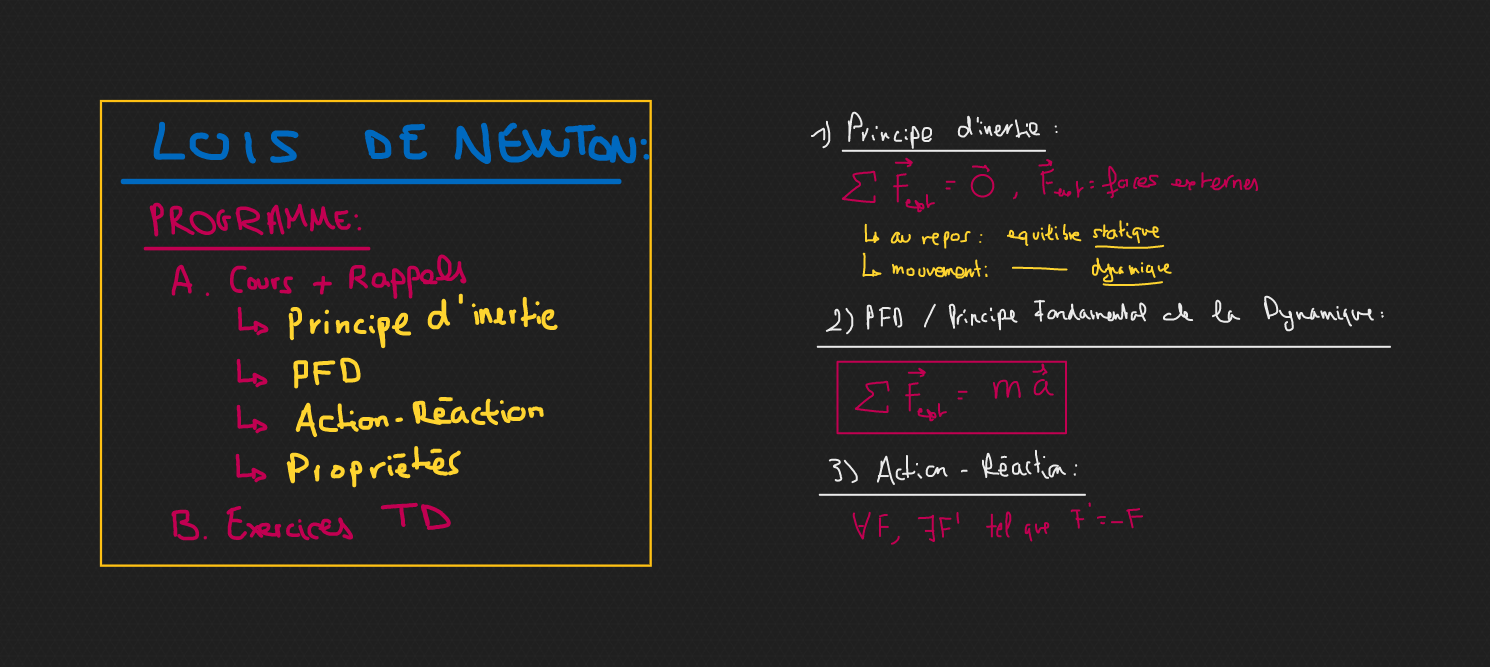 LOIS DE NEWTON:
PROGRAMME:
A. Cours + Rappels
↳ Principe d'inertie
↳ PFD
↳ Action-Réaction
↳ Propriétés
B. Exercices TD
1) Principe d'inertie :
∑ F⃗ext = 0⃗ , F⃗ext = forces externes
↳ au repos : equilibre statique
↳ mouvement: —— dynamique
2) PFD / Principe Fondamental de la Dynamique :
∑ F⃗ext = m a⃗
3) Action - Réaction :
∀F, ∃F' tel que F' = -F